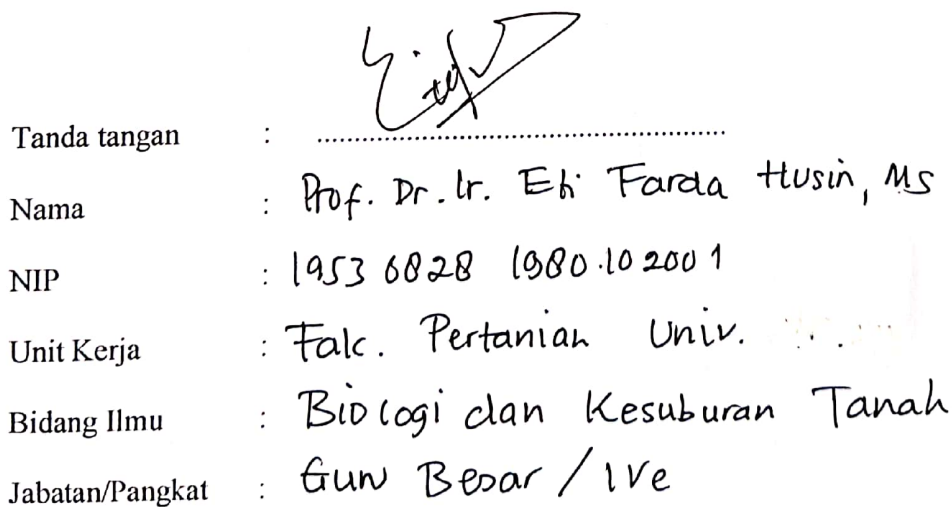 Tanda tangan : ..........................................................
Nama : Prof. Dr. Ir. Eti Farda Husin, MS
NIP : 1953 0828 1980.10 2001
Unit Kerja : Fak. Pertanian Univ.
Bidang Ilmu : Biologi dan Kesuburan Tanah
Jabatan/Pangkat : Guru Besar / IVe